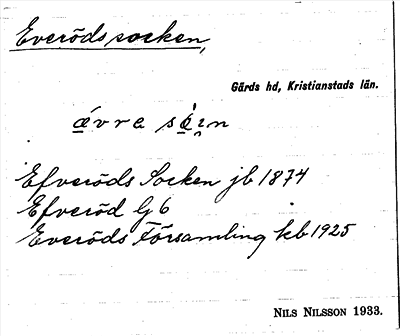 Everöds socken,
Gärds hd, Kristianstads län.
Efveröds Socken jb 1874
Efveröd Gj 6
Everöds Församling kb 1925
NILS NILSSON 1933.